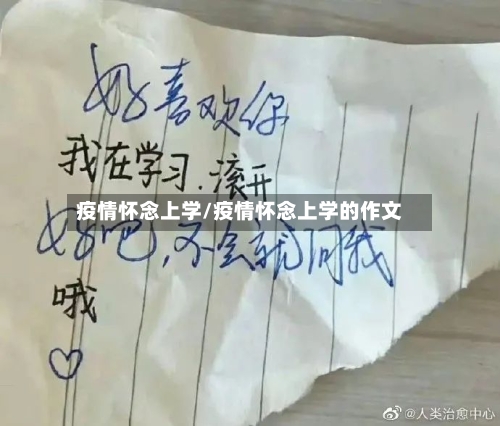 好喜欢你
我在学习.滚开
疫情怀念上学/疫情怀念上学的作文
好吧,不会就问我
哦
♡
@人类治愈中心